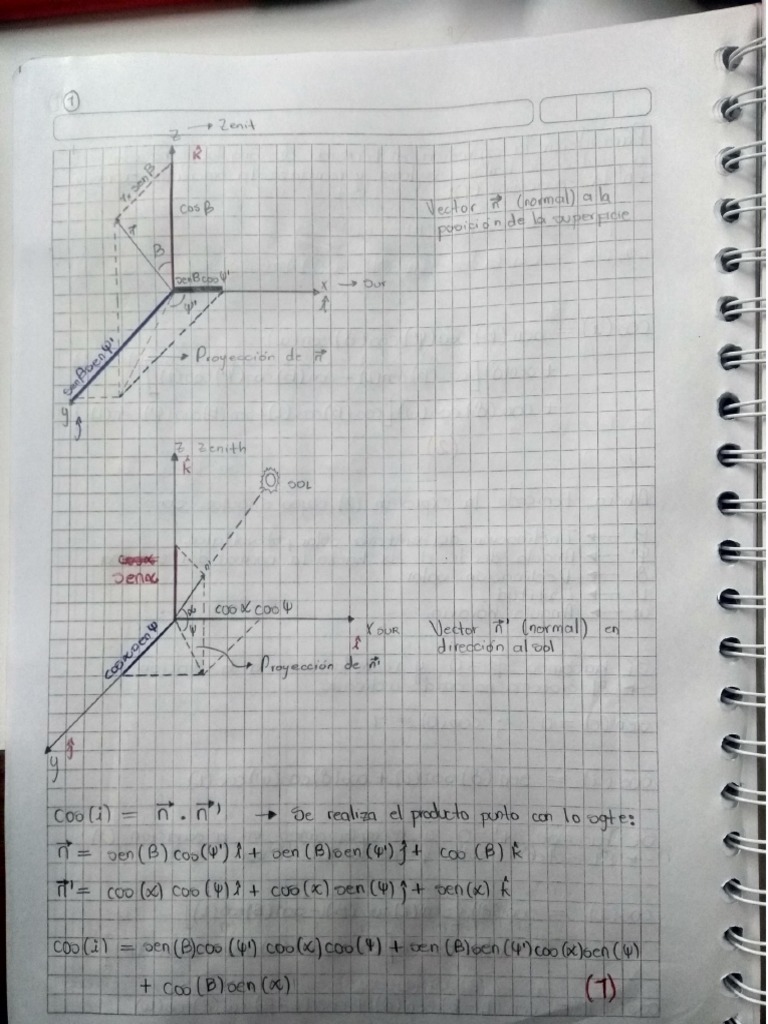 1
Z → Zenit
k̂
r. sen β
n⃗
β
cos β
sen β cos ψ'
ψ'
x → sur
î
sen β sen ψ'
→ Proyección de n⃗
y
ĵ
Vector n⃗ (normal) a la
posición de la superficie
Z Zenith
k̂
SOL
cos α
sen α
n'
α
cos α cos ψ
ψ
x sur
î
cos α sen ψ
→ Proyección de n⃗'
y
ĵ
Vector n⃗' (normal) en
dirección al sol
cos (i) = n⃗ . n⃗' → Se realiza el producto punto con lo sgte:
n⃗ = sen (β) cos (ψ') î + sen (β) sen (ψ') ĵ + cos (β) k̂
n⃗' = cos (α) cos (ψ) î + cos (α) sen (ψ) ĵ + sen (α) k̂
cos (i) = sen (β) cos (ψ') cos (α) cos (ψ) + sen (β) sen (ψ') cos (α) sen (ψ)
+ cos (β) sen (α) (1)